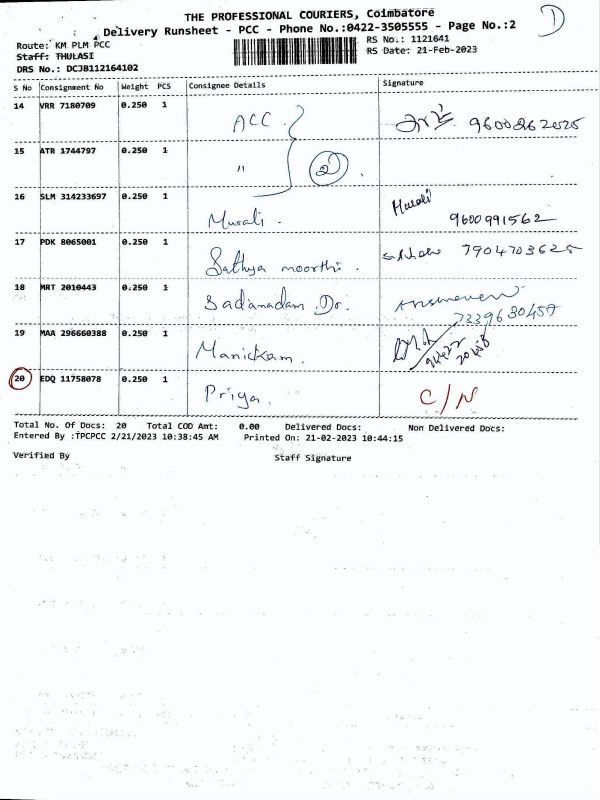 THE PROFESSIONAL COURIERS, Coimbatore
Delivery Runsheet - PCC - Phone No.:0422-3505555 - Page No.:2
Route: KM PLM PCC
RS No.: 1121641
Staff: THULASI
RS Date: 21-Feb-2023
DRS No.: DCJB112164102
S No Consignment No Weight PCS Consignee Details Signature
14 VRR 7180709 0.250 1 ACC 9600262525
15 ATR 1744797 0.250 1 " 2
16 SLM 314233697 0.250 1 Murali. Murali 9600991562
17 PDK 8065001 0.250 1 Sathya moorthi. 7904703625
18 MRT 2010443 0.250 1 Sadanadam Dr. 7339680457
19 MAA 296660388 0.250 1 Manickam.
20 EDQ 11758078 0.250 1 Priya. C/N
Total No. Of Docs: 20 Total COD Amt: 0.00 Delivered Docs: Non Delivered Docs:
Entered By :TPCPCC 2/21/2023 10:38:45 AM Printed On: 21-02-2023 10:44:15
Verified By Staff Signature